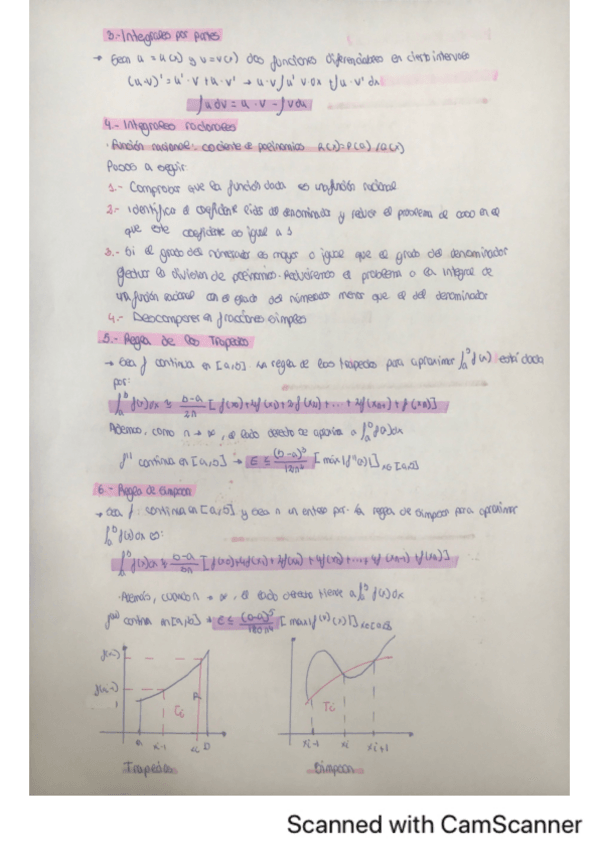 3.- Integrales por partes
→ Sean u = u(x) y v = v(x) dos funciones diferenciables en cierto intervalo
(u·v)' = u'·v + u·v' → u·v ∫ u' v dx + ∫ u·v' dx
∫ u dv = u·v - ∫ v du
4.- Integrales racionales
· Función racional: cociente de polinomios R(x)=P(x)/Q(x)
Pasos a seguir:
1.- Comprobar que la función dada es una función racional
2.- Identifica el coeficiente líder del denominador y reduce el problema de caso en el
que este coeficiente es igual a 1
3.- Si el grado del numerador es mayor o igual que el grado del denominador
efectuar la división de polinomios. Reduciremos el problema a la integral de
una función racional con el grado del numerador menor que el del denominador
4.- Descomponer en fracciones simples
5.- Regla de los Trapecios
→ Sea f continua en [a,b]. La regla de los trapecios para aproximar ∫ₐᵇ f(x) está dada
por:
∫ₐᵇ f(x)dx ≈ b-a/2n [f(x0)+2f(x1)+2f(x2)+...+2f(xn-1)+f(xn)]
Además, como n → ∞, el lado derecho se aproxima a ∫ₐᵇ f(x)dx
f'' continua en [a,b] → E ≤ (b-a)³/12n² [máx|f''(x)|] x∈[a,b]
6.- Regla de Simpson
→ Sea f continua en [a,b] y sea n un entero par. La regla de Simpson para aproximar
∫ₐᵇ f(x)dx es:
∫ₐᵇ f(x)dx ≈ b-a/3n [f(x0)+4f(x1)+2f(x2)+4f(x3)+...+4f(xn-1)+f(xn)]
Además, cuando n → ∞, el lado derecho tiende a ∫ₐᵇ f(x)dx
continua en [a,b] → E ≤ (b-a)⁵/180n⁴ [max|f⁽⁴⁾(x)|] x∈[a,b]
f(xi)
f(xi-1)
Ti
a xi-1 xi b
Ti
xi-1 xi xi+1
Trapecios Simpson
Scanned with CamScanner